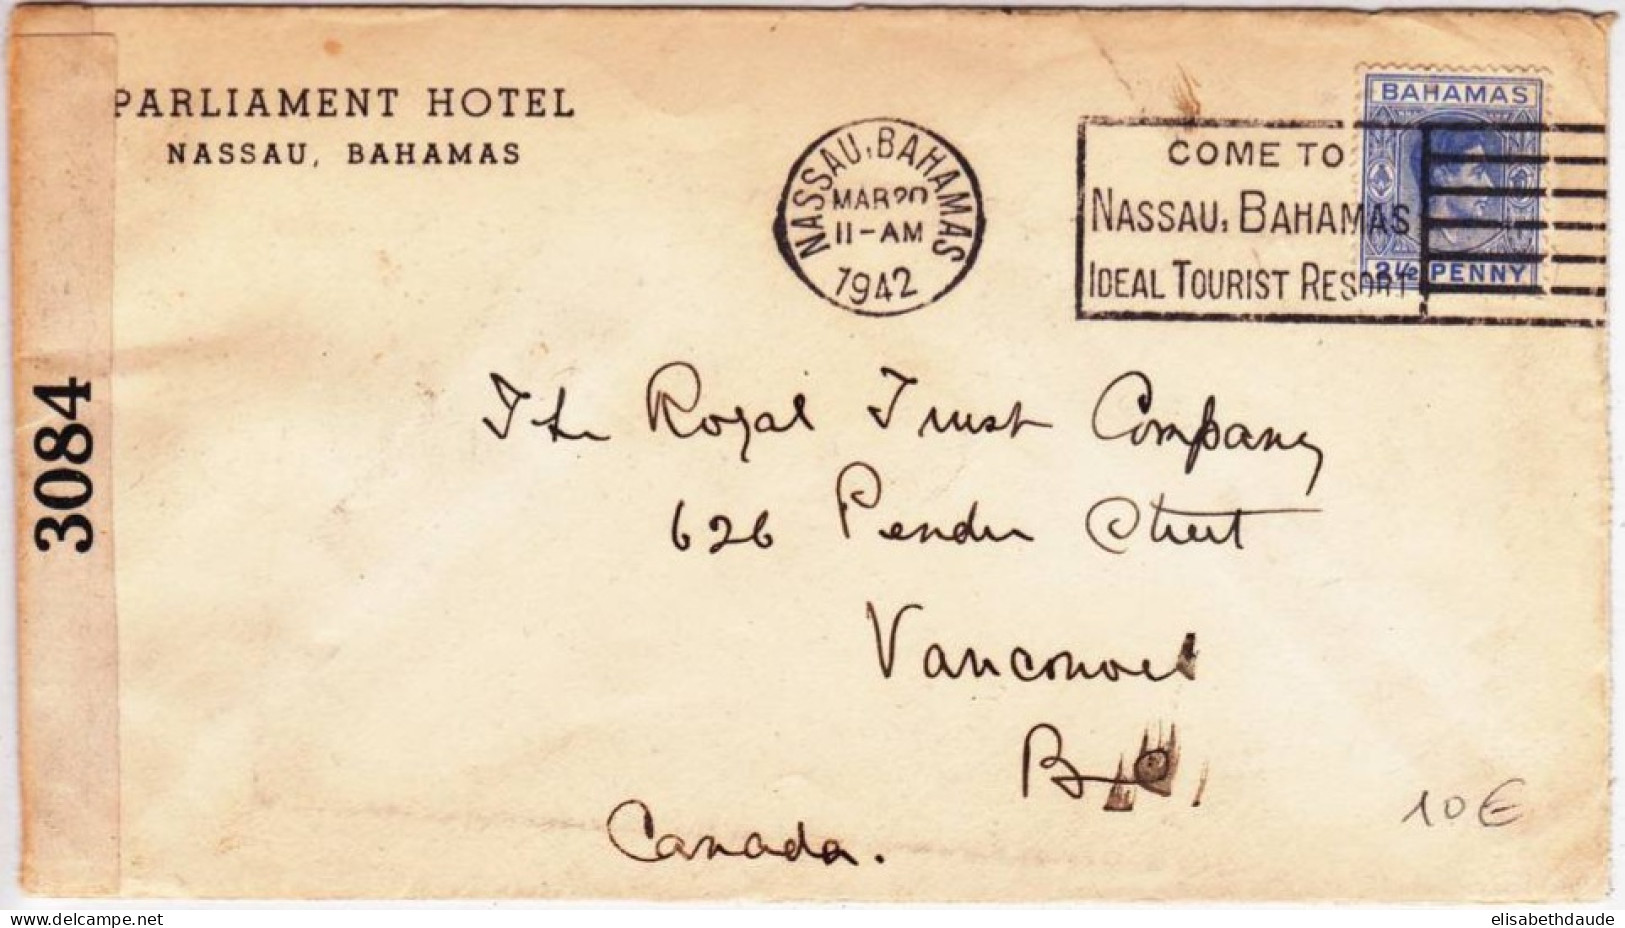 PARLIAMENT HOTEL
NASSAU, BAHAMAS
NASSAU, BAHAMAS
MAR 20
11-AM
1942
COME TO
NASSAU, BAHAMAS
IDEAL TOURIST RESORT
BAHAMAS
2½ PENNY
3084
The Royal Trust Company
626 Pender Street
Vancouver
B.C.
Canada.
10€
delcampe.net
elisabethdaude